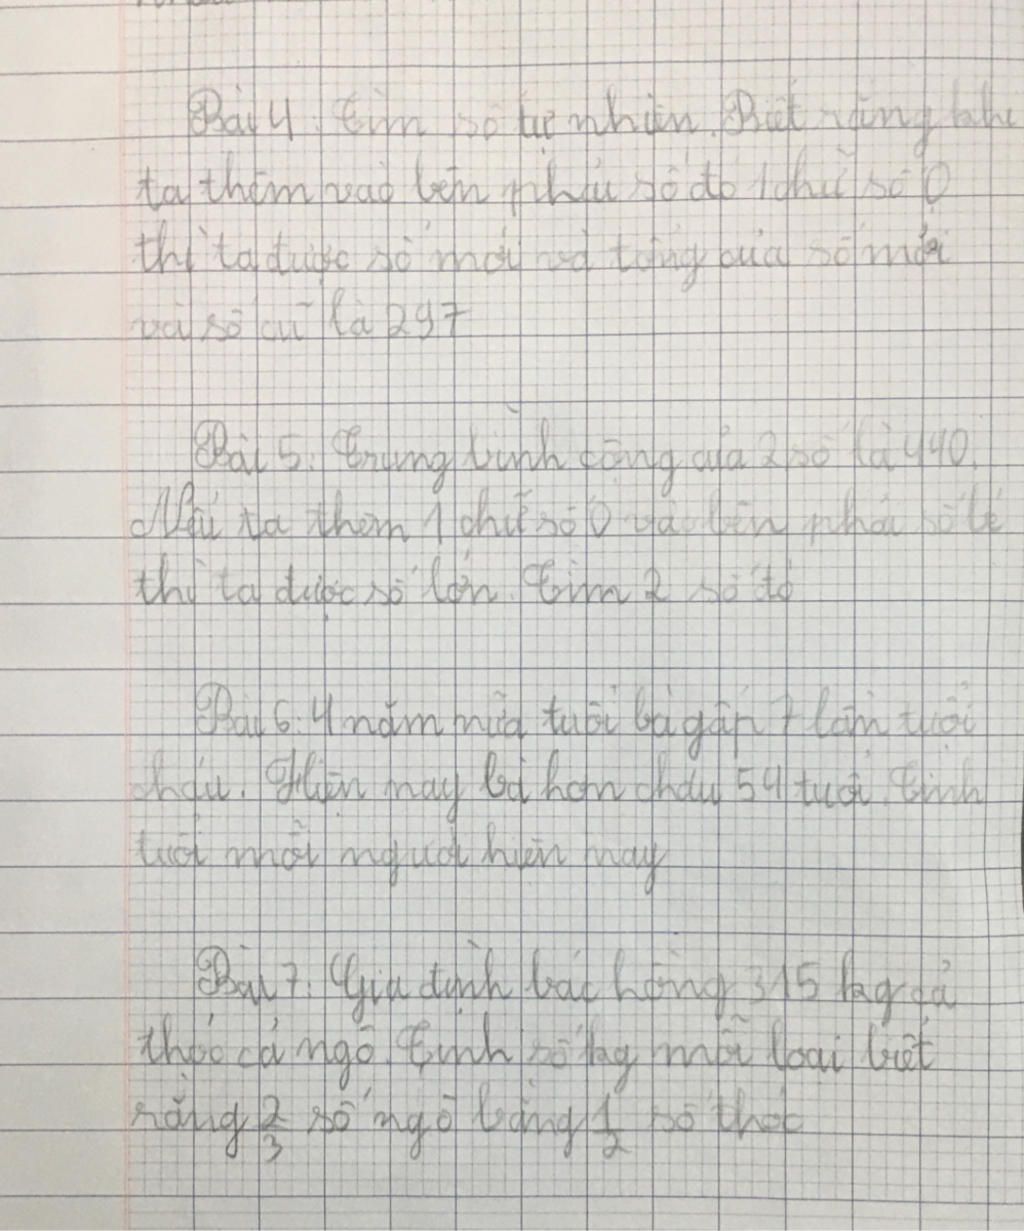 Bài 4: Tìm số tự nhiên. Biết rằng khi
ta thêm vào bên phải số đó 1 chữ số 0
thì ta được số mới và tổng của số mới
và số cũ là 297
Bài 5: Trung bình cộng của 2 số là 440.
Nếu ta thêm 1 chữ số 0 vào bên phải số bé
thì ta được số lớn. Tìm 2 số đó
Bài 6: 4 năm nữa tuổi bà gấp 7 lần tuổi
cháu. Hiện nay bà hơn cháu 54 tuổi. Tính
tuổi mỗi người hiện nay
Bài 7: Gia đình bác hồng 315 kg cả
thóc cả ngô. Tính số kg mỗi loai biết
rằng 2/3 số ngô bằng 1/2 số thóc